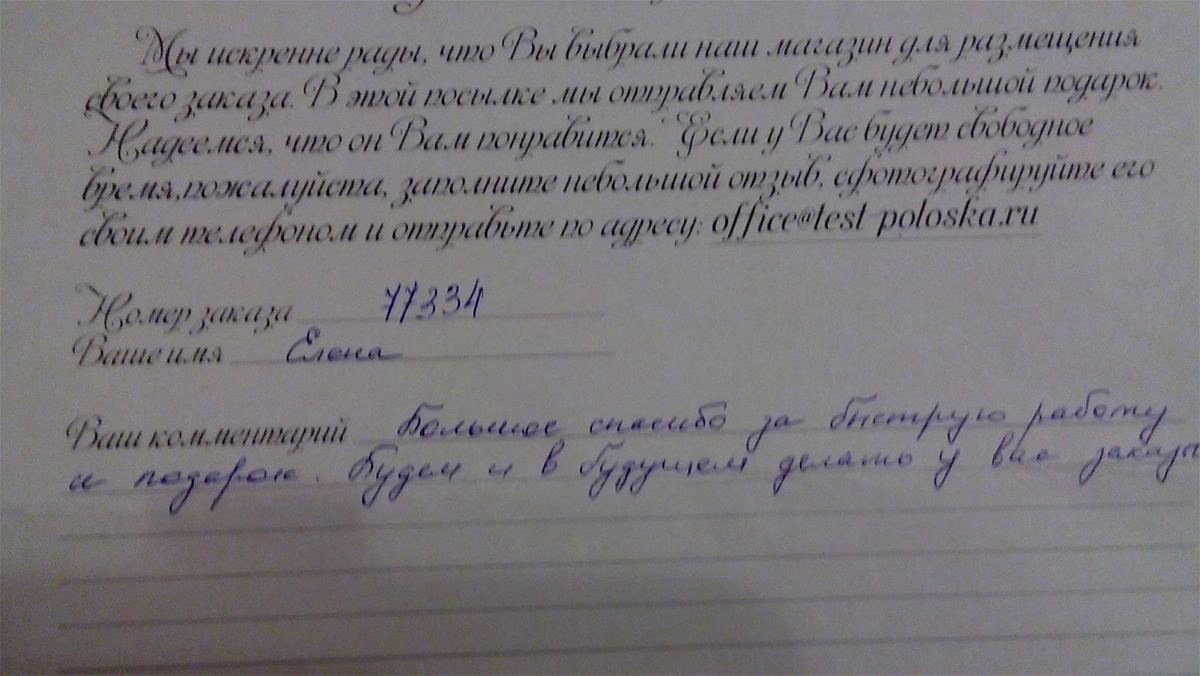 Мы искренне рады, что Вы выбрали наш магазин для размещения
своего заказа. В этой посылке мы отправляем Вам небольшой подарок.
Надеемся, что он Вам понравится. Если у Вас будет свободное
время,пожалуйста, заполните небольшой отзыв, сфотографируйте его
своим телефоном и отправьте по адресу: office@test-poloska.ru
Номер заказа 77334
Ваше имя Елена
Ваш комментарий Большое спасибо за быструю работу
и подарок. Будем и в будущем делать у вас заказы